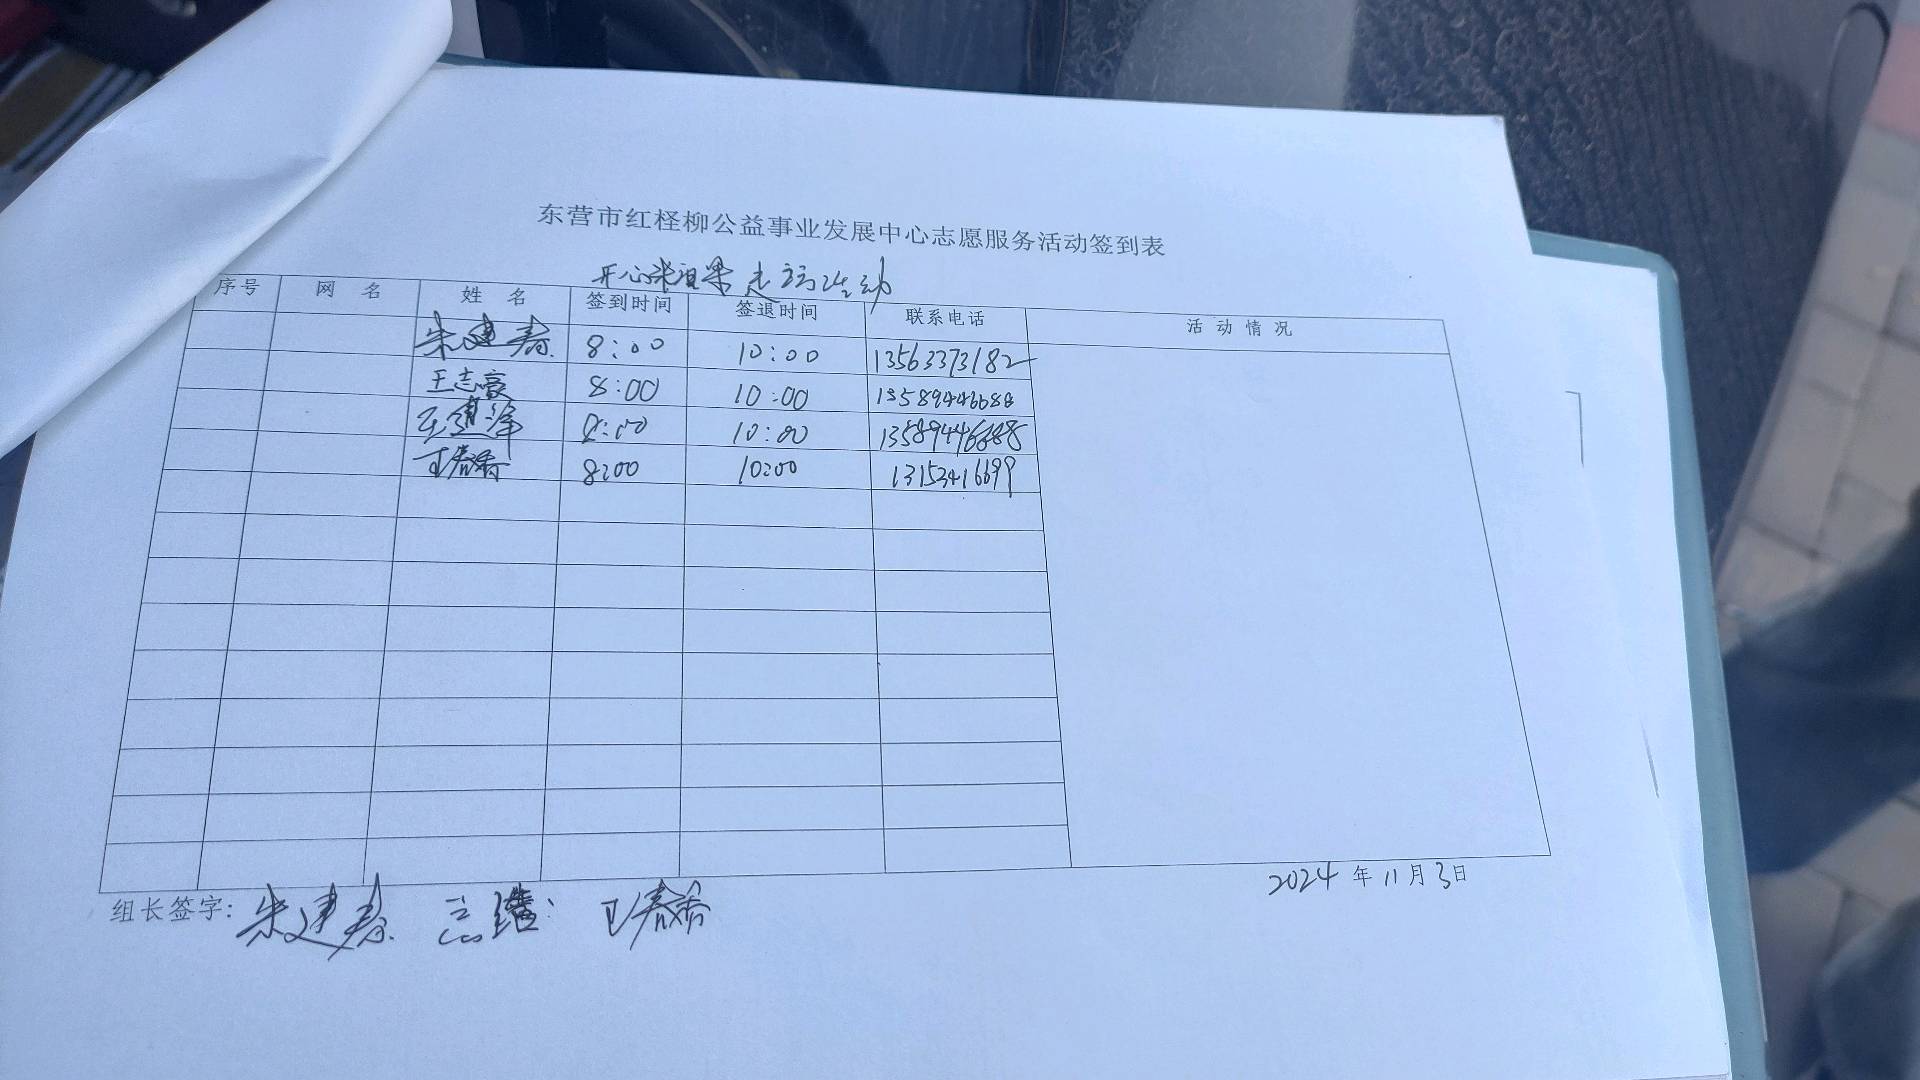 东营市红柽柳公益事业发展中心志愿服务活动签到表
开心 走访活动
序号 网 名 姓 名 签到时间 签退时间 联系电话 活 动 情 况
朱建春 8:00 10:00 13563373182
王志豪 8:00 10:00 13589446688
王建 8:00 10:00 13589446688
王春香 8:00 10:00 13153416699
2024 年 11 月 3 日
组长签字: 朱建春 志 王春香